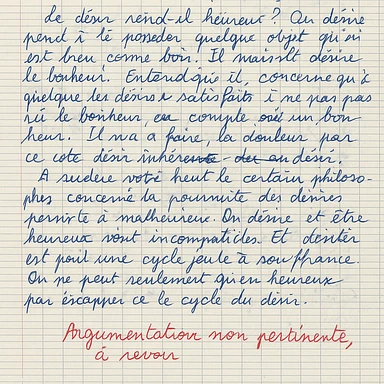 Le désir rend-il heureux? On désire
pend i té posseder quelque objet qu'on
est bien comme bon. Il naissit désire
le bonheur. Entend qu'on il, concerne qu'à
quelque les désirs e satisfaits i ne pas pas
nü le bonheur, ca compte un bon
heur. Il n'a a faire, la douleur par
ce cote désir inhérente - désir.
A sudere votre heut le certain philoso-
phes concerné la poursuite des désires
permrte à malheureux. On désire et être
heureux vont incompatides. Et désiter
est poil une cycle jeule à souffrance.
On ne peut seulement qu'en heureux
par éscapper ce le cycle du désir.
Argumentation non pertinente,
à revoir